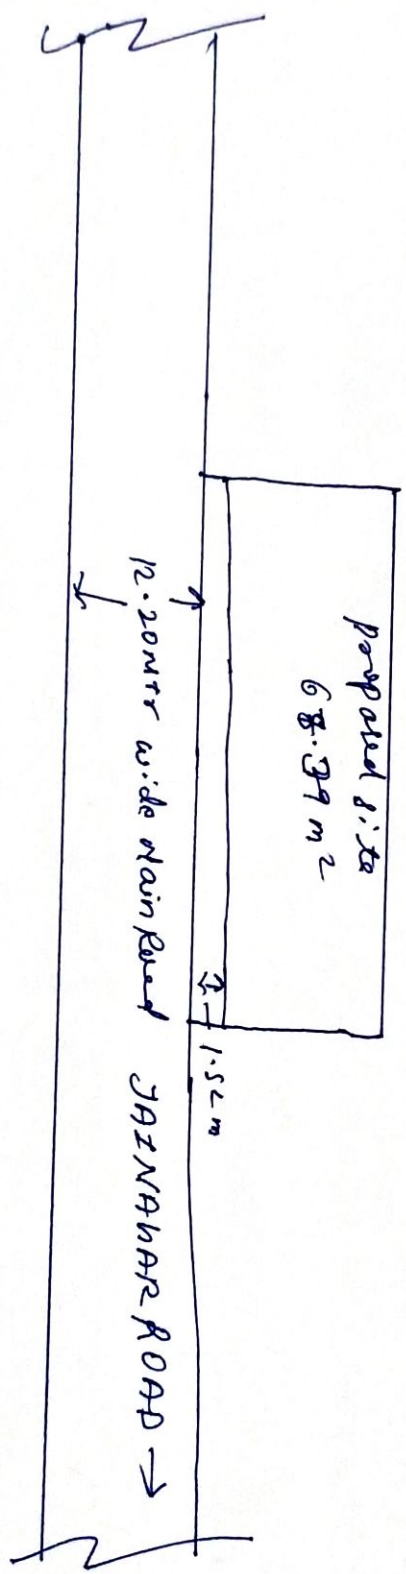 proposed site
68.39 m²
1.52 m
12.20Mtr wide Main Road JAINAGAR ROAD →